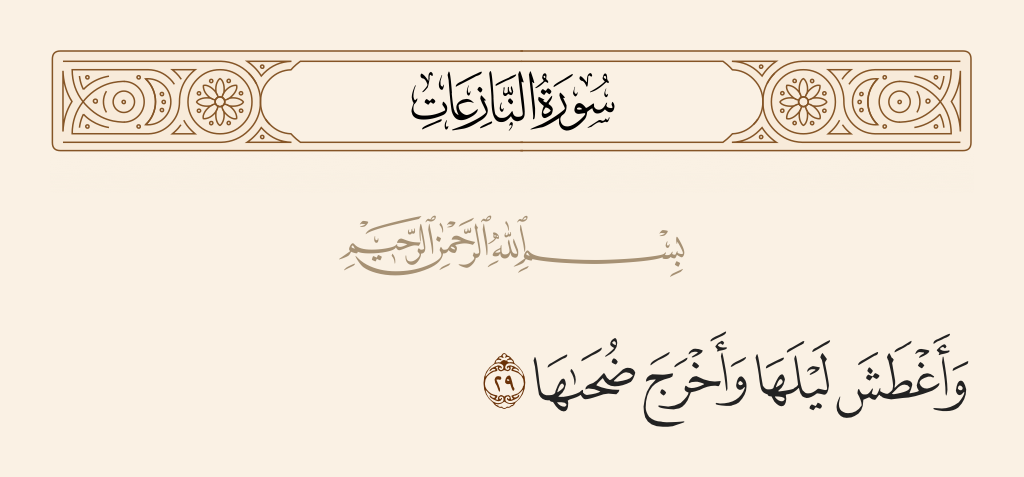 سُورَةُ النَّازِعَاتِ
بِسْمِ ٱللَّهِ ٱلرَّحْمَٰنِ ٱلرَّحِيمِ
وَأَغْطَشَ لَيْلَهَا وَأَخْرَجَ ضُحَىٰهَا ٢٩